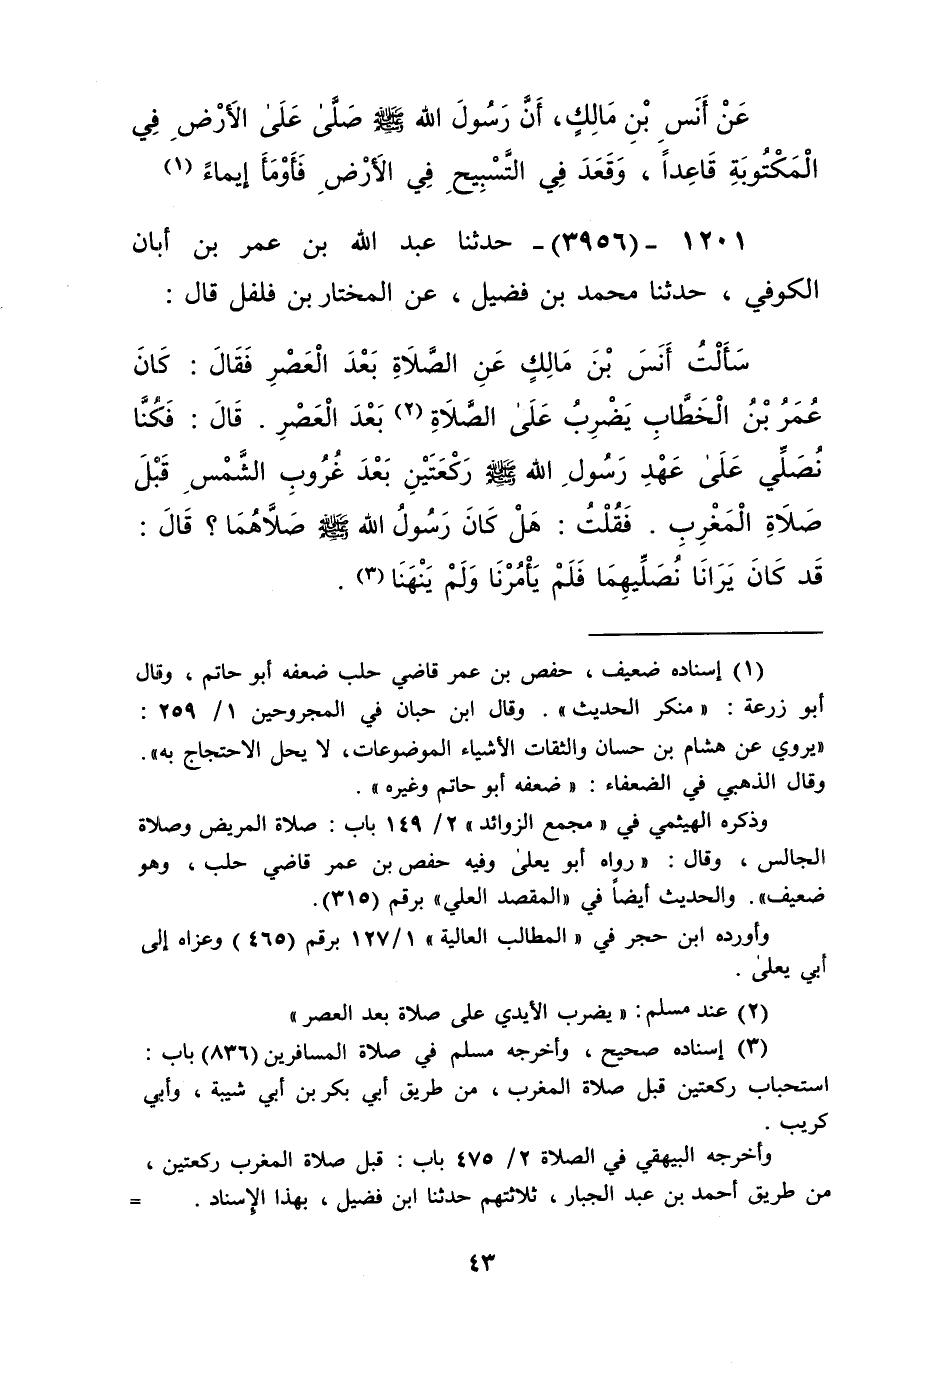 عَنْ أَنَسِ بْنِ مَالِكٍ، أَنَّ رَسُولَ الله ﷺ صَلَّىٰ عَلَىٰ الأَرْضِ فِي
الْمَكْتُوبَةِ قَاعِداً ، وَقَعَدَ فِي التَّسْبِيحِ فِي الأَرْضِ فَأَوْمَأَ إيماءً (١)
١٢٠١ ـ (٣٩٥٦)ـ حدثنا عبد الله بن عمر بن أبان
الكوفي ، حدثنا محمد بن فضيل ، عن المختار بن فلفل قال :
سَأَلْتُ أَنَسَ بْنَ مَالِكٍ عَنِ الصَّلَاةِ بَعْدَ الْعَصْرِ فَقَالَ : كَانَ
عُمَرُ بْنُ الْخَطَّابِ يَضْرِبُ عَلَىٰ الصَّلَاةِ (٢) بَعْدَ الْعَصْرِ . قَالَ : فَكُنَّا
نُصَلِّي عَلَىٰ عَهْدِ رَسُولِ الله ﷺ رَكْعَتَيْنِ بَعْدَ غُرُوبِ الشَّمْسِ قَبْلَ
صَلَاةِ الْمَغْرِبِ . فَقُلْتُ : هَلْ كَانَ رَسُولُ الله ﷺ صَلَّاهُمَا ؟ قَالَ :
قَد كَانَ يَرَانَا نُصَلِّيهِمَا فَلَمْ يَأْمُرْنَا وَلَمْ يَنْهَنَا (٣) .
(١) إسناده ضعيف ، حفص بن عمر قاضي حلب ضعفه أبو حاتم ، وقال
أبو زرعة : « منكر الحديث » . وقال ابن حبان في المجروحين ١/ ٢٥٩ :
«يروي عن هشام بن حسان والثقات الأشياء الموضوعات، لا يحل الاحتجاج به» .
وقال الذهبي في الضعفاء : « ضعفه أبو حاتم وغيره » .
وذكره الهيثمي في « مجمع الزوائد » ٢/ ١٤٩ باب : صلاة المريض وصلاة
الجالس ، وقال : « رواه أبو يعلىٰ وفيه حفص بن عمر قاضي حلب ، وهو
ضعيف» . والحديث أيضاً في «المقصد العلي» برقم (٣١٥).
وأورده ابن حجر في « المطالب العالية » ١٢٧/١ برقم (٤٦٥ ) وعزاه إلى
أبي يعلىٰ .
(٢) عند مسلم : « يضرب الأيدي على صلاة بعد العصر »
(٣) إسناده صحيح ، وأخرجه مسلم في صلاة المسافرين (٨٣٦) باب :
استحباب ركعتين قبل صلاة المغرب ، من طريق أبي بكر بن أبي شيبة ، وأبي
كريب .
وأخرجه البيهقي في الصلاة ٢/ ٤٧٥ باب : قبل صلاة المغرب ركعتين ،
من طريق أحمد بن عبد الجبار ، ثلاثتهم حدثنا ابن فضيل ، بهذا الإسناد . =
٤٣